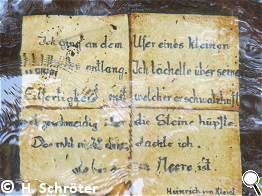 Ich ging an dem Ufer eines kleinen
entlang. Ich lächelte über seine
Eilfertigkeit mit welcher er schwatzhaft
und geschmeidig über die Steine hüpfte.
Das ruht nicht dachte ich.
als bis es Meere ist
Heinrich von Kleist
© H. Schröter